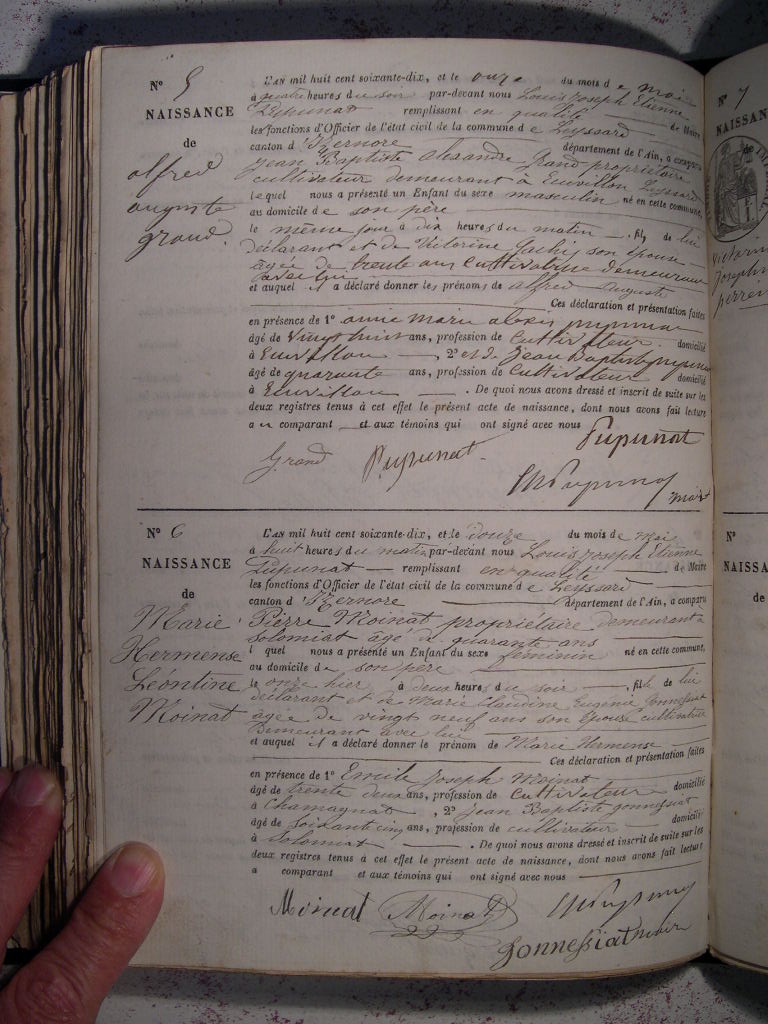 N° 5
NAISSANCE
de
alfred
auguste
grand.
L'AN mil huit cent soixante-dix, et le onze du mois de mai
à quatre heures du soir par-devant nous Louis Joseph Etienne
Pupunat remplissant en qualité de Maire
les fonctions d'Officier de l'état civil de la commune de Leyssard
canton d'Izernore département de l'Ain, a comparu
Jean Baptiste alexandre Grand proprietaire
cultivateur demeurant à Leyssard
lequel nous a présenté un Enfant du sexe masculin né en cette commune,
au domicile de son père
le même jour à dix heures du matin fils de lui
déclarant et de Victorine son épouse
agée de trente ans Cultivatrice demeurant
avec lui
et auquel il a déclaré donner les prénoms de alfred auguste
Ces déclaration et présentation faites
en présence de 1° marie alexis pupunat
âgé de vingt huit ans, profession de Cultivateur domicilié
à , 2° et de Jean Baptiste pupunat
âgé de quarante ans, profession de Cultivateur domicilié
à . De quoi nous avons dressé et inscrit de suite sur les
deux registres tenus à cet effet le présent acte de naissance, dont nous avons fait lecture
au comparant et aux témoins qui ont signé avec nous
Pupunat
Grand Pupunat
Pupunat maire
N° 6
NAISSANCE
de
Marie
Hermense
Leontine
Moinat
L'AN mil huit cent soixante-dix, et le douze du mois de mai
à huit heures du matin par-devant nous Louis Joseph Etienne
Pupunat remplissant en qualité de Maire
les fonctions d'Officier de l'état civil de la commune de Leyssard
canton d'Izernore département de l'Ain, a comparu
Pierre Moinat propriétaire demeurant à
Solomiat âgé de quarante ans
lequel nous a présenté un Enfant du sexe féminin né en cette commune,
au domicile de son père
le onze hier, à deux heures du soir, fille de lui
déclarant et de Marie Claudine Eugénie Gonnessiat
agée de vingt neuf ans son épouse cultivatrice
demeurant avec lui
et auquel il a déclaré donner le prénom de Marie Hermense
Ces déclaration et présentation faites
en présence de 1° Emile Joseph Moinat
âgé de trente deux ans, profession de Cultivateur domicilié
à Chamagnat, 2° jean Baptiste gonnessiat
âgé de soixante cinq ans, profession de cultivateur domicilié
à Solomiat. De quoi nous avons dressé et inscrit de suite sur les
deux registres tenus à cet effet le présent acte de naissance, dont nous avons fait lecture
a comparant et aux témoins qui ont signé avec nous
Moinat Moinat Pupunat
Gonnessiat maire
N° 7
NAISSAN
de
N°
NAISSA
de